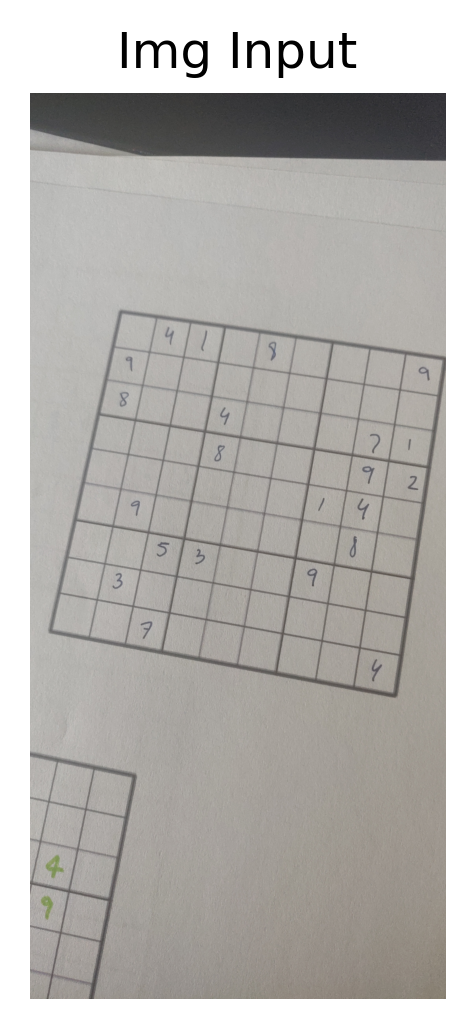 Img Input
4 1 8 9
9
8 4 7 1
8 9 2
1 4
9 8
5 3 9
3
7 4
4
9